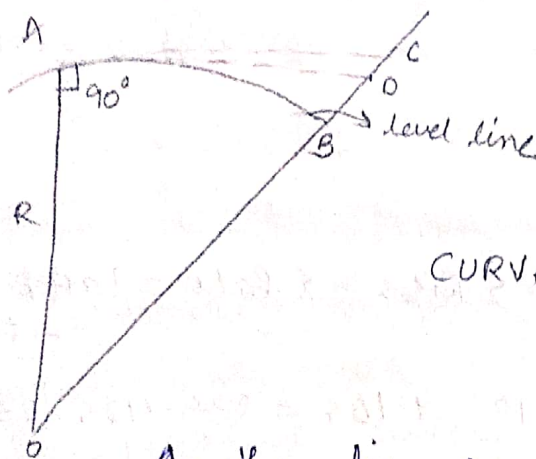 A
C
90°
D
level line
B
R
CURV
O